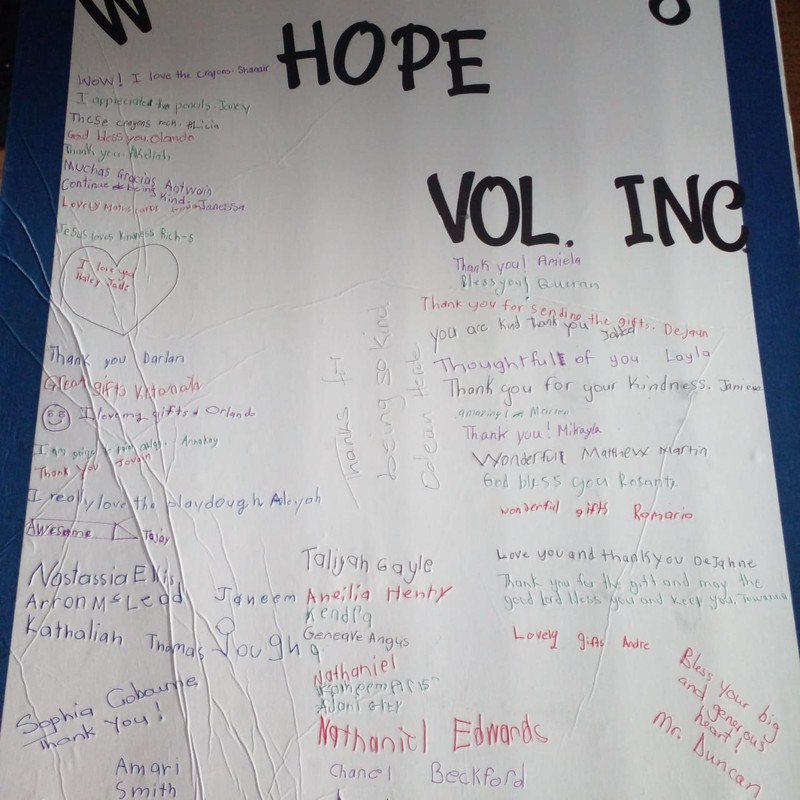 W
HOPE
VOL. INC
WOW! I love the crayons. Shanair
I appreciated the pencils. Janey
These crayons rock. Alicia
God bless you. Olando
Thank you
Muchas Gracias Antwain
Continue being kind. Janessa
Lovely
Jesus loves Rich-s
I love you
Haley Jade
Thank you Darian
Great gifts
I love my gifts Orlando
I am going to Annakay
Thank you Jovain
I really love the playdough Aleyah
Awesome Tajay
Nastassia Ellis
Arron McLeod
Kathaliah Thomas
Janeem
Sophia Gobourne
Thank you!
Amari
Smith
Thanks for
being so kind
Odean
Taliyah Gayle
Aneilia Henry
Kendra
Geneave Angus
Nathaniel
Nathaniel Edwards
Chanel Beckford
Thank you! Amiela
Bless you! Quiran
Thank you for sending the gifts. Dejaun
you are kind Thank you
Thoughtfull of you Layla
Thank you for your kindness.
amazing
Thank you! Mikayla
Wonderfull Matthew Martin
God bless you
wonderful gifts Romario
Love you and thank you DeJahne
Thank you for the gift and may the
good lord bless you and keep you.
Lovely gifts Andre
Bless your big
and generous
heart!
Mr. Duncan